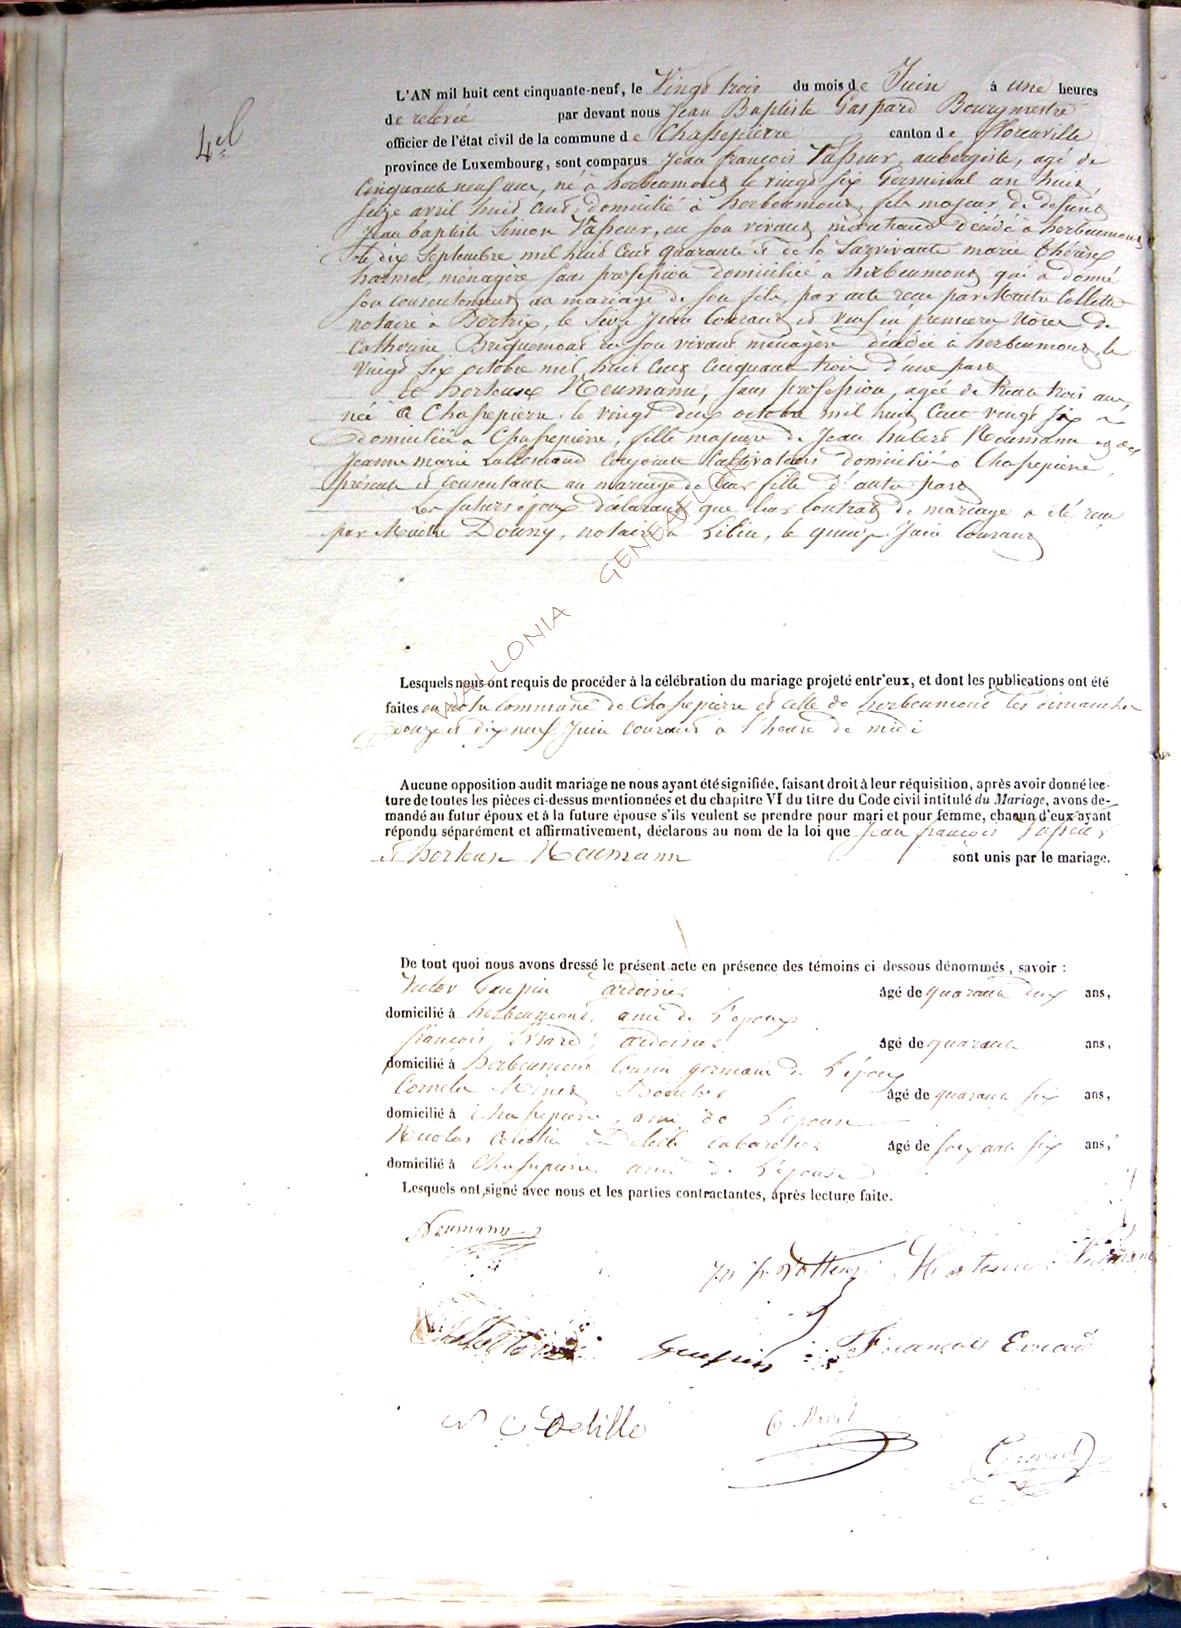 4e
L'AN mil huit cent cinquante-neuf, le Vingt trois du mois de Juin à une heures
de relevée par devant nous Jean Baptiste Gaspard Bourgmestre
officier de l'état civil de la commune de Chassepierre canton de Florenville
province de Luxembourg, sont comparus Jean françois Vasseur, aubergiste, agé de
cinquante neuf ans, né à herbeumont le vingt six Germinal an huit,
seize avril huit cent, domicilié à herbeumont, fils majeur de defunt
Jean baptiste Simon Vasseur, en son vivant marchand décédé à herbeumont
le dix Septembre mil huit cent quarante et de la Survivante marie thérèse
harmel, ménagère sans profession domiciliée à herbeumont qui a donné
son consentement au mariage de son fils, par acte recu par Maitre Collette
notaire à Bertrix, le Seize Juin Courant et veuf en première noces de
Catherine Briquemont en son vivant ménagère décédée à herbeumont, le
vingt six octobre mil huit cent cinquante trois d'une part
Et hortense Neumann, sans profession, agée de trente trois ans,
née à Chassepierre le vingt deux octobre mil huit cent vingt six
domiciliée à Chassepierre, fille majeure de Jean hubert Neumann et de
Jeanne marie Lallemand conjoints Cultivateurs domiciliés à Chassepierre,
présents et consentants au mariage de leur fille d'autre part
Les futurs époux déclarant que leur contrat de mariage a été recu
par Maitre Douny, notaire à Libin, le quinze Juin Courant
WALLONIA GENEAFLORE
Lesquels nous ont requis de procéder à la célébration du mariage projeté entr'eux, et dont les publications ont été
faites en notre commune de Chassepierre et celle de herbeumont les dimanches
douze et dix neuf Juin courant à l'heure de midi
Aucune opposition audit mariage ne nous ayant été signifiée, faisant droit à leur réquisition, après avoir donné lec-
ture de toutes les pièces ci-dessus mentionnées et du chapitre VI du titre du Code civil intitulé du Mariage, avons de-
mandé au futur époux et à la future épouse s'ils veulent se prendre pour mari et pour femme, chacun d'eux ayant
répondu séparément et affirmativement, déclarons au nom de la loi que Jean françois Vasseur
et hortense Neumann sont unis par le mariage.
De tout quoi nous avons dressé le présent acte en présence des témoins ci-dessous dénommés, savoir :
Victor Goupin ardoisier âgé de quarante deux ans,
domicilié à herbeumont, ami de l'époux
françois Evrard, ardoisier âgé de quarante ans,
domicilié à herbeumont Cousin germain de l'époux
Corneille âgé de quarante six ans,
domicilié à Chassepierre, ami de l'épouse
Nicolas Celestin Delille cabaretier âgé de soixante six ans,
domicilié à Chassepierre ami de l'épouse
Lesquels ont signé avec nous et les parties contractantes, après lecture faite.
Neumann
Hortense Neumann
Goupin François Evrard
N C Delille
Gaspard